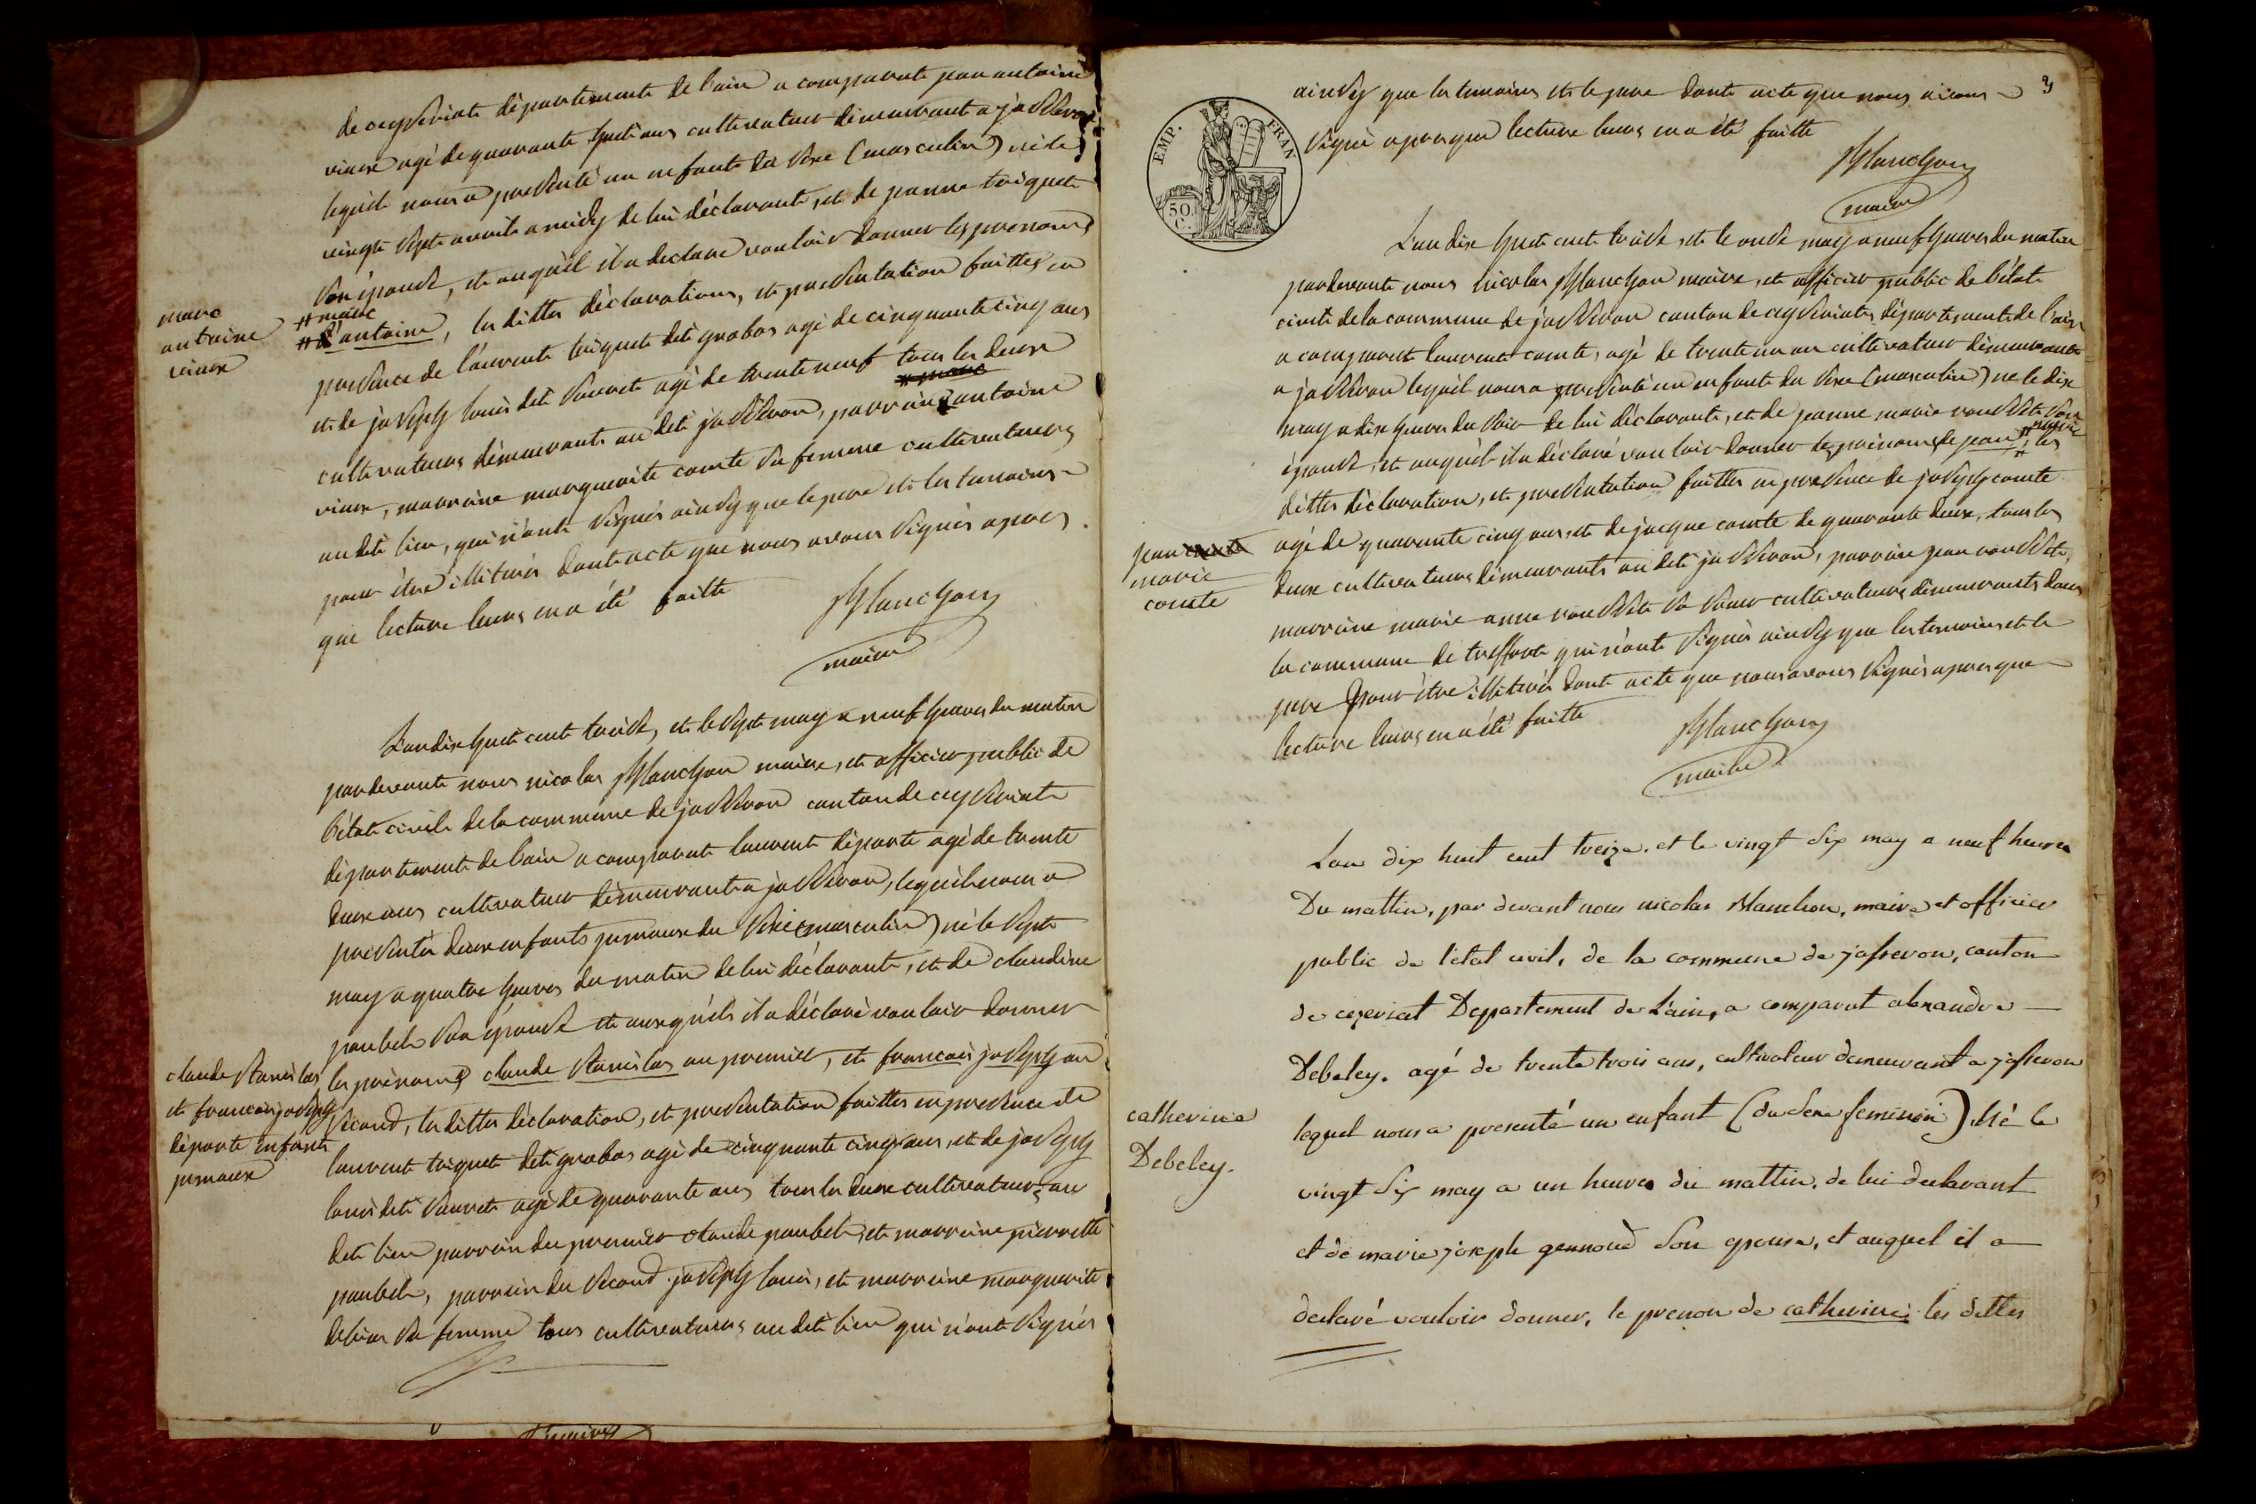 de ceyseriate département de l'ain a comparut jean antoine
viaux agé de quarante huit ans cultivateur demeurant a jasseron
lequél nous a présenté un enfant du sexe (masculin) né le
vingt sept avril a midy de lui déclarant, et de jeanne triquet
son épouse, et auquél il a déclaré vouloir donner les prenoms
marc
antoine
viaux
# marc
# d'antoine, les dittes déclarations, et présentation faittes en
presence de laurent triquet dit grabas agé de cinquante cinq ans
et de joseph louis dit sauret agé de trente neuf tous les deux
cultivateurs démeurants au dit jasseron, parrain antoine
viaux, marraine marguerite comte sa femme cultivateurs
au dit lieu, qui n'ont signés ainsy que le pere et les temoins
pour être illitérés dont acte que nous avons signés apres
que lecture leurs en a été faitte
Blanchon
maire
L'an dix huit cent treise, et le sept may a neuf heures du matin
pardevant nous nicolas Blanchon maire, et officier public de
l'état civile de la commune de jasseron canton de ceyseriate
département de l'ain a comparut laurent déporte agé de trente
deux ans cultivateur démeurant a jasseron, lequél nous a
présentés deux enfants jumeaux du sexe (masculin) né le sept
may a quatre heures du matin de lui déclarant, et de claudine
paubel son épouse et auxquéls il a déclaré vouloir donner
claude stanislas
et francois joseph
déporte enfants
jumeaux
les prénoms claude stanislas au premier, et francois joseph au
second, les dittes déclaration, et présentation faittes en presence de
laurent triquet dit grabas agé de cinquante cinq ans, et de joseph
louis dit sauret agé de quarante ans tous les deux cultivateurs au
dit lieu parrain du premier claude paubel, et marraine pierrette
paubel, parrain du second joseph louis, et marraine marguerite
sa femme tous cultivateurs au dit lieu qui n'ont signés
3
ainsy que les temoins et le pere dont acte que nous avons
signé apres que lecture leurs en a été faitte
Blanchon
maire
EMP. FRAN
50 C.
L'an dix huit cent treise, et le onse may a neuf heures du matin
pardevant nous nicolas Blanchon maire, et officier public de l'état
civile de la commune de jasseron canton de ceyseriate département de l'ain
a comparut laurent comte, agé de trente un an cultivateur démeurant
a jasseron lequél nous a présenté un enfant du sexe (masculin) né le dix
may a dix heures du soir de lui déclarant, et de jeanne marie son
# marie
épouse, et auquél il a déclaré vouloir donner les prénoms de jean #, les
dittes déclaration, et présentation faittes en presence de joseph comte
jean comte
marie
comte
agé de quarante cinq ans, et de jacque comte de quarante deux, tous les
deux cultivateurs démeurants au dit jasseron, parrain jean
marraine marie anne sa sœur cultivateurs démeurants dans
la commune de treffort qui n'ont signés ainsy que les temoins et le
pere pour être illitérés dont acte que nous avons signés apres que
lecture leurs en a été faitte
Blanchon
maire
L'an dix huit cent treize. et le vingt six may a neuf heures
Du mattin, par devant nous nicolas Blanchon, maire et officier
public de l'état civil, de la commune de jasseron, canton
de ceyseriat Departement de L'ain, a comparut alexandre
Debeley. agé de trente trois ans, cultivateur demeurant a jasseron
catherine
Debeley.
lequel nous a presenté un enfant (du sexe feminin) né le
vingt six may a un heures du mattin, de lui declarant
et de marie joseph gennoud son epouse, et auquel il a
declaré vouloir donner, le prenon de catherine. les dittes